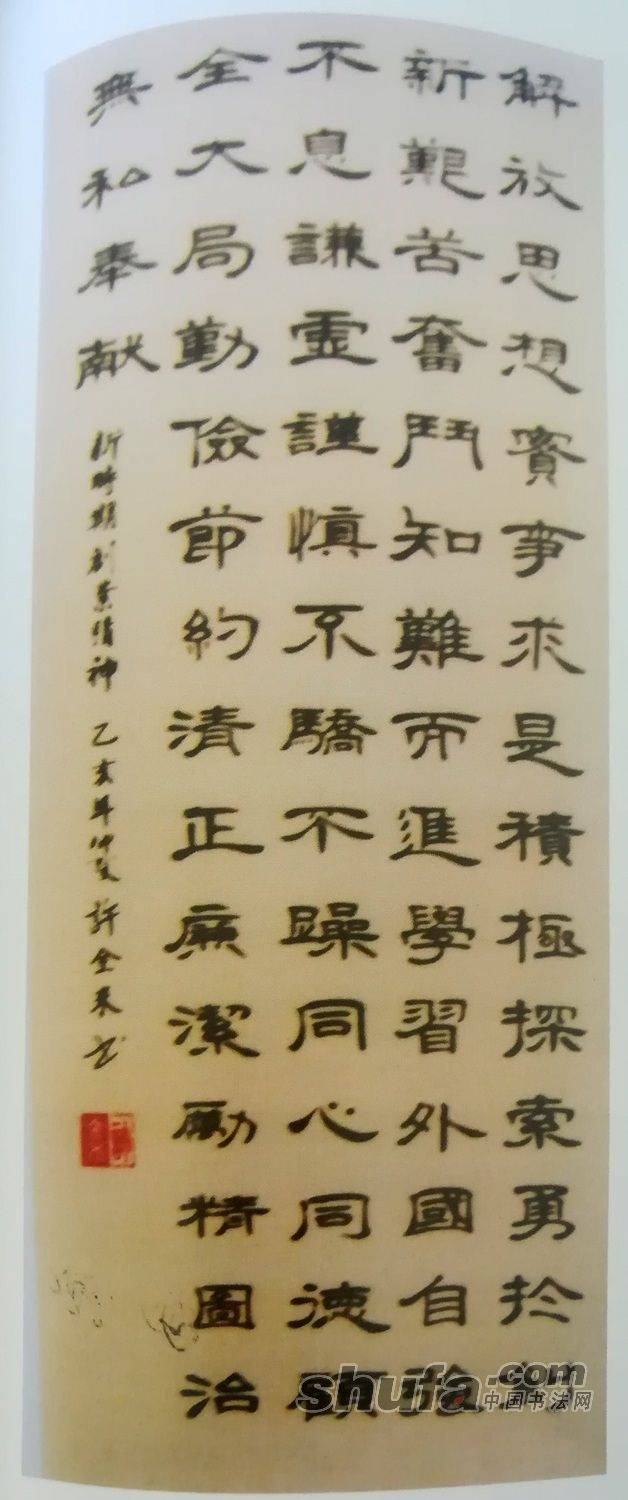 解放思想實事求是積極探索勇於
新艱苦奮鬥知難而進學習外國自強
不息謙虛謹慎不驕不躁同心同德顧
全大局勤儉節約清正廉潔勵精圖治
無私奉献
新時期創業精神 乙亥年仲夏 許全來书
shufa.com
中国书法网